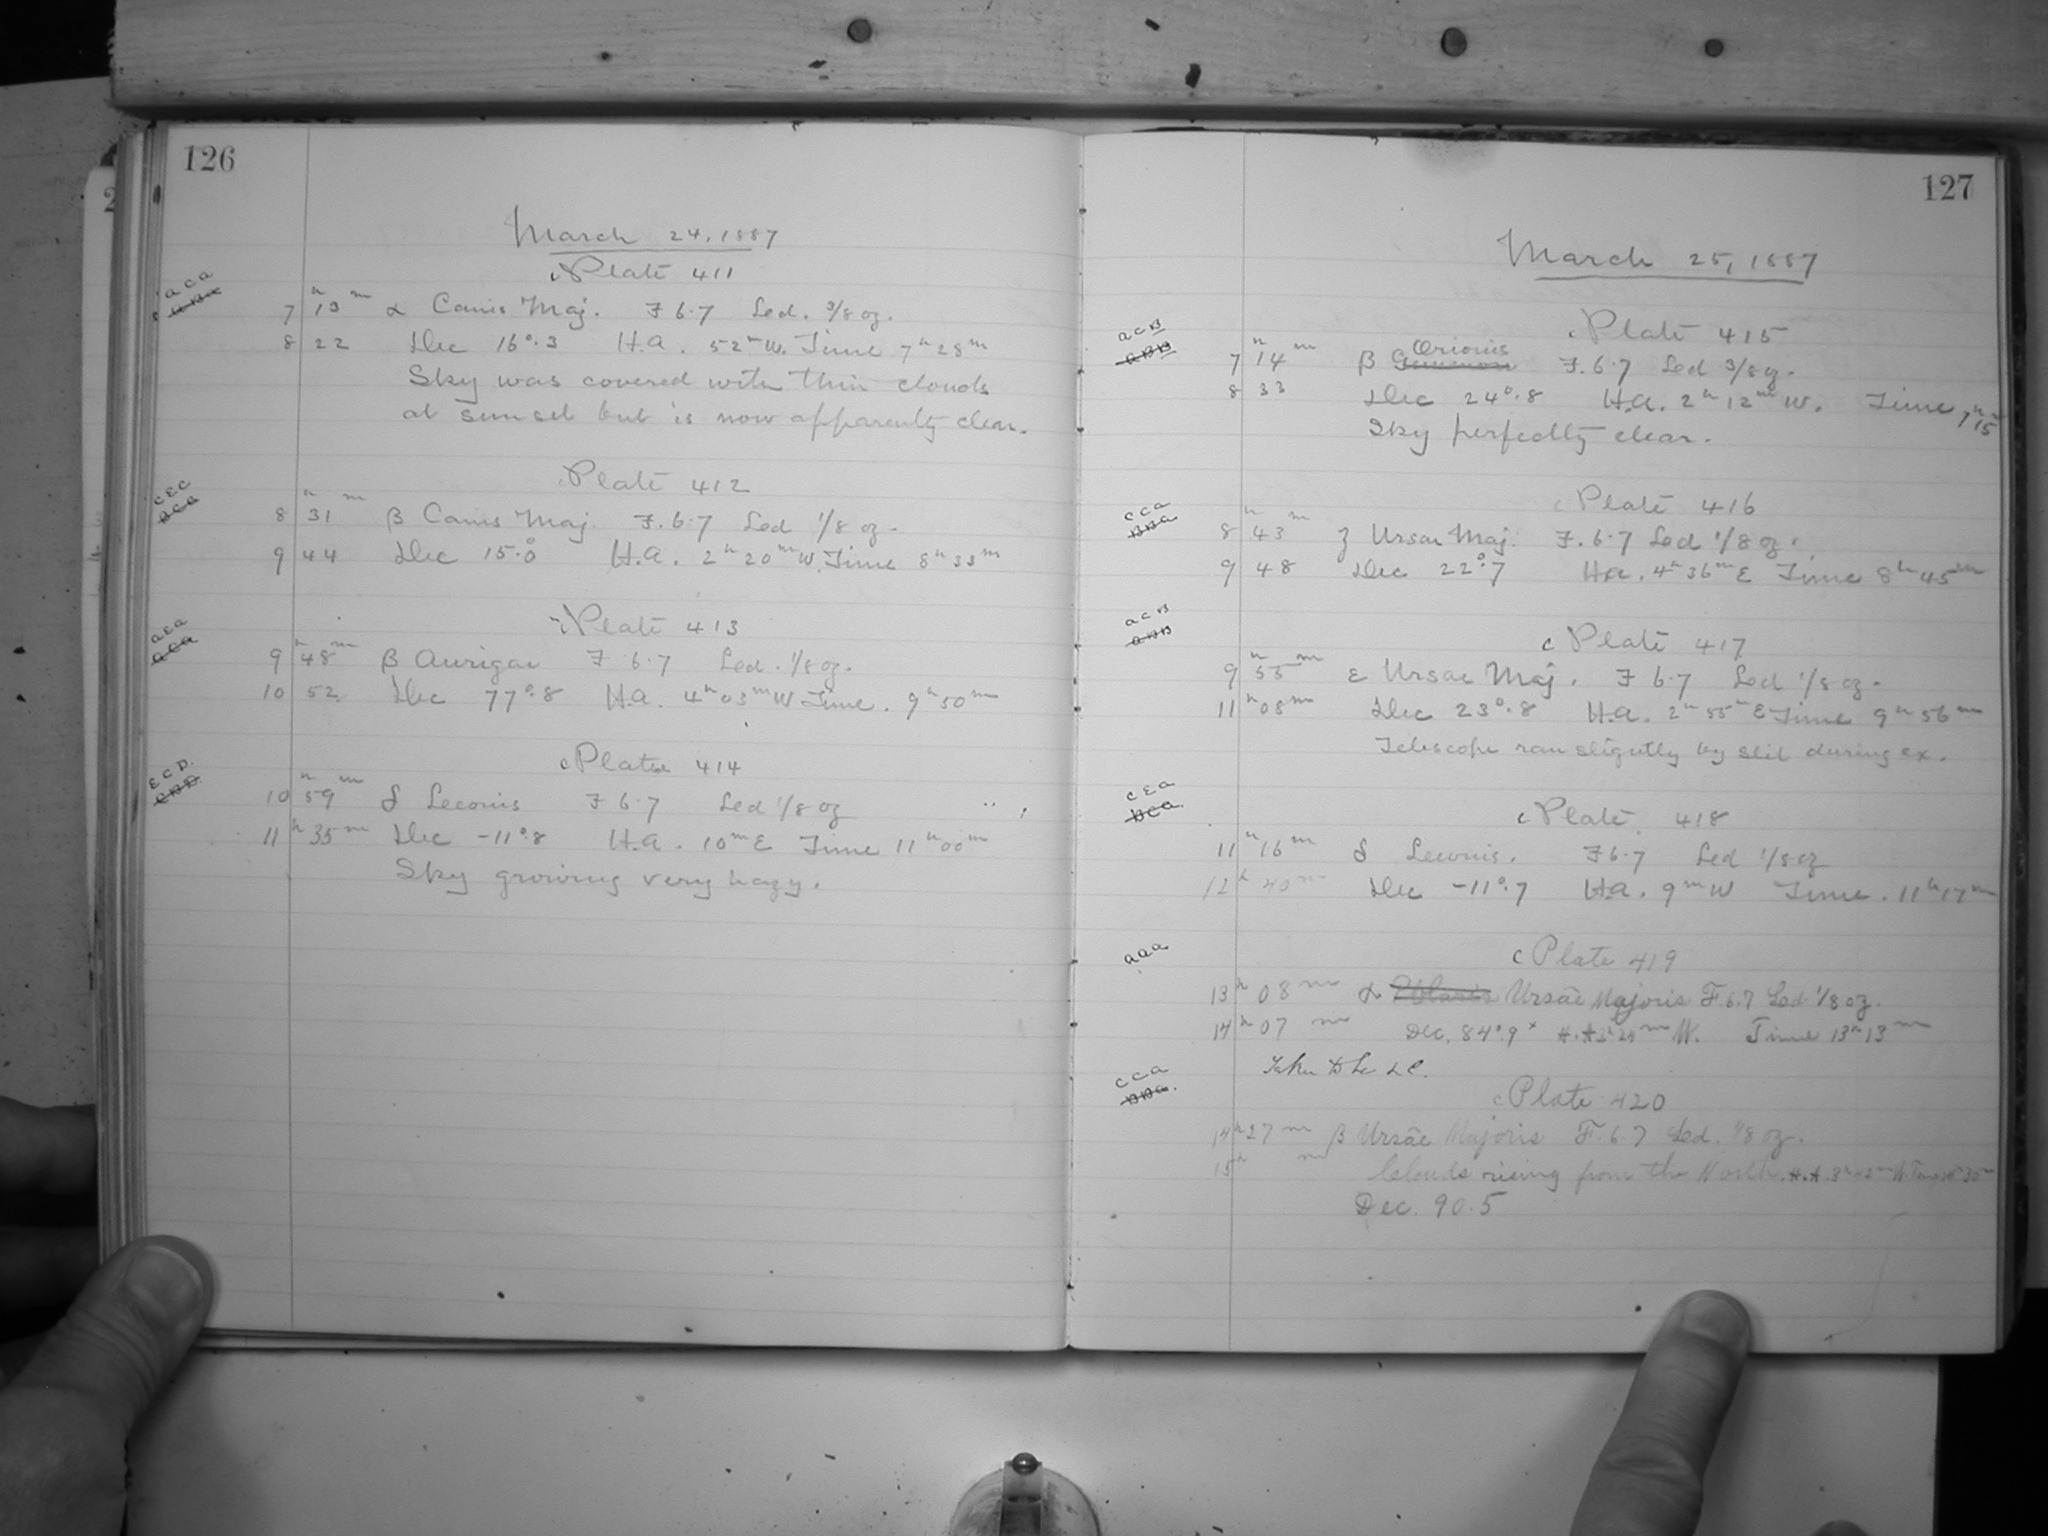 126
March 24, 1887
c Plate 411
a C a
7 13 α Canis Maj. F 6.7 Led. 3/8 oz.
8 22 Dec 16°.3 H.A. 52m W. Time 7h 28m
Sky was covered with thin clouds
at sunset but is now apparently clear.
Plate 412
C E C
8 31 β Canis Maj. F. 6.7 Led 1/8 oz.
9 44 Dec 15.°0 H.A. 2h 20m W. Time 8h 33m
Plate 413
a E a
9 48m β Aurigae F 6.7 Led. 1/8 oz.
10 52 Dec 77°.8 H.A. 4h 03m W Time. 9h 50m
c Plate 414
E C D.
10 59 δ Leonis F 6.7 Led 1/8 oz
11h 35m Dec -11°.8 H.A. 10m E Time 11h 00m
Sky growing very hazy.
127
March 25, 1887
c Plate 415
a C B
7h 14m β Orionis F. 6.7 Led 3/8 oz.
8 33 Dec 24°.8 H.A. 2h 12m W. Time 7h 15m
Sky perfectly clear.
c Plate 416
C C a
8h 43m ζ Ursae Maj. F. 6.7 Led 1/8 oz.
9 48 Dec 22°.7 H.A. 4h 36m E Time 8h 45m
a C B
c Plate 417
9h 55m ε Ursae Maj. F 6.7 Led 1/8 oz.
11h 08m Dec 23°.8 H.A. 2h 55m E Time 9h 56m
Telescope ran slightly by slit during ex.
C E a
c Plate 418
11h 16m δ Leonis. F 6.7 Led 1/8 oz
12h 40m Dec -11°.7 H.A. 9m W Time. 11h 17m
a a a
c Plate 419
13h 08m α Polaris Ursae Majoris F 6.7 Led 1/8 oz.
14h 07m Dec. 84°.9 H.A. W. Time 13h 13m
Taken to be
C C a
c Plate 420
14h 27m β Ursae Majoris F. 6.7 Led. 1/8 oz.
15h m Clouds rising from the North. H.A. 3h 42m W.
Dec. 90.5